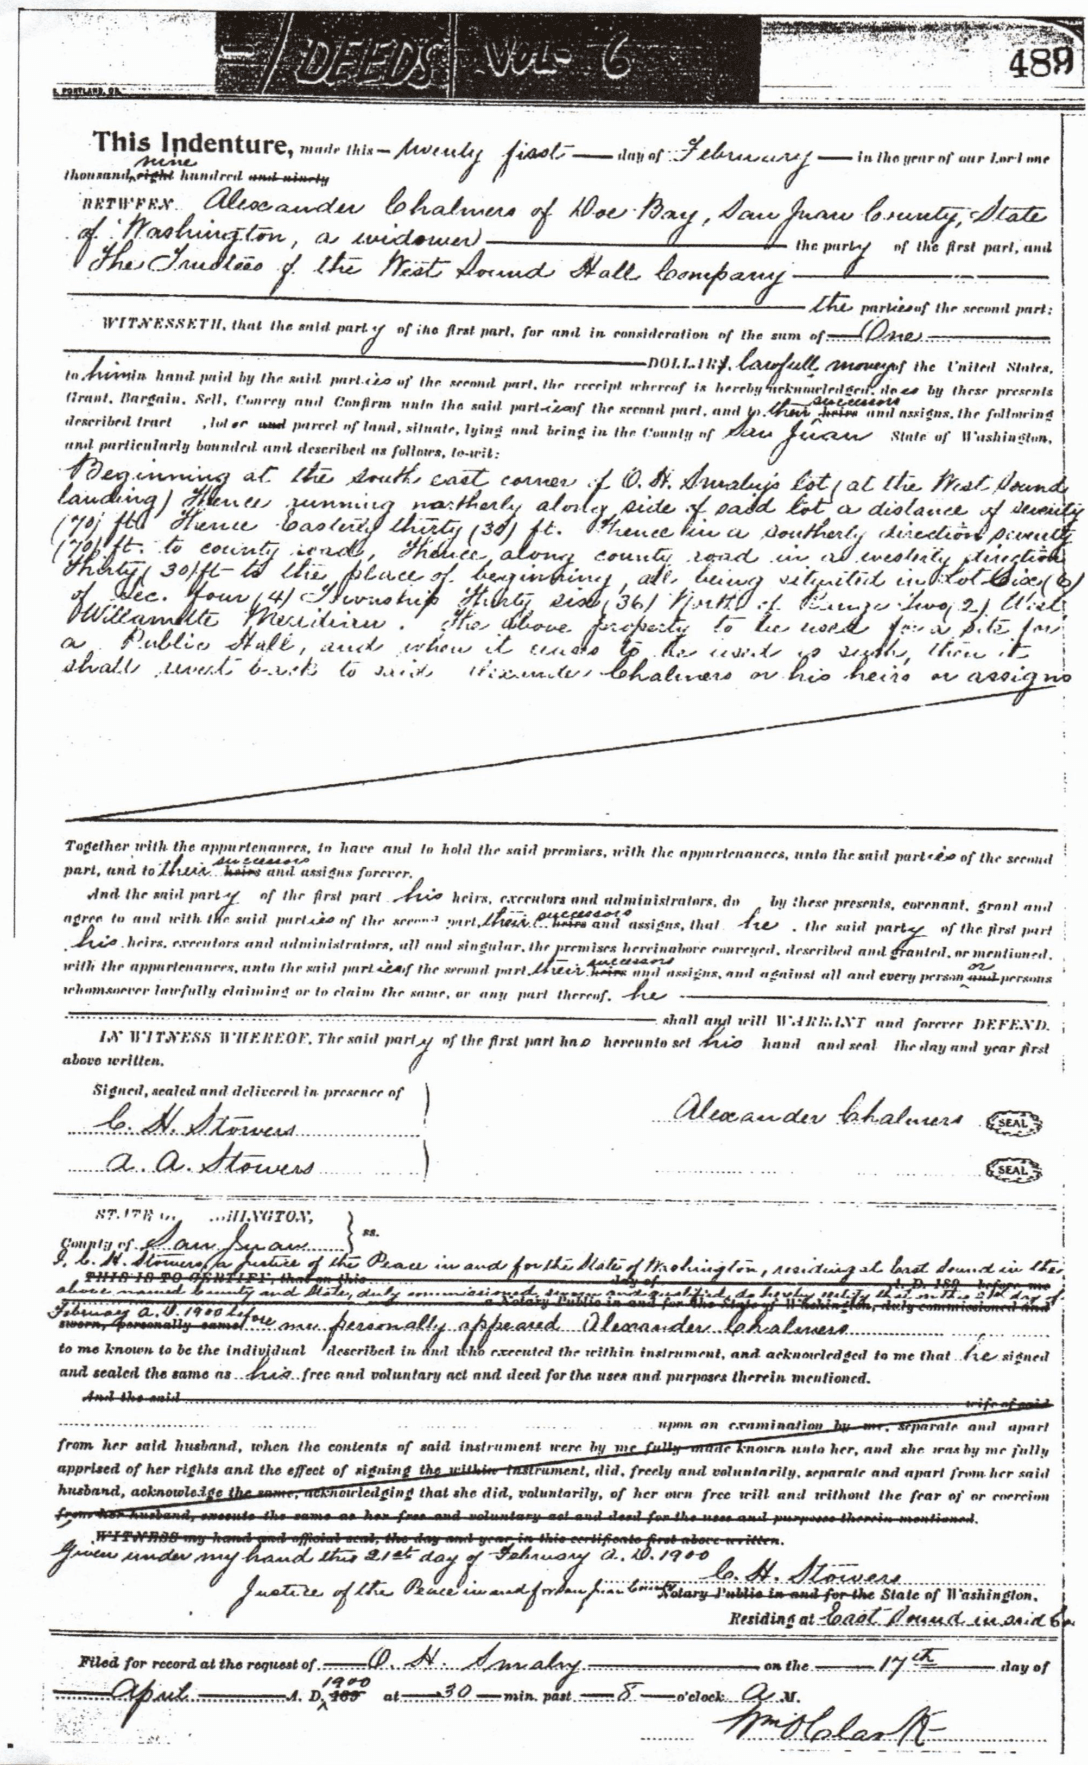 DEEDS VOL- 6
489
S, PORTLAND, OR.
This Indenture, made this — twenty first — day of February — in the year of our Lord one
nine
thousand, eight hundred and ninety
BETWEEN Alexander Chalmers of Doe Bay, San Juan County, State
of Washington, a widower — the party of the first part, and
The Trustees of the West Sound Hall Company
the parties of the second part:
WITNESSETH, that the said party of the first part, for and in consideration of the sum of — One
DOLLARS, lawfull money of the United States,
to him in hand paid by the said parties of the second part, the receipt whereof is hereby acknowledged, does by these presents
successors
Grant, Bargain, Sell, Convey and Confirm unto the said parties of the second part, and to their heirs and assigns, the following
described tract , lot or and parcel of land, situate, lying and being in the County of San Juan State of Washington,
and particularly bounded and described as follows, to-wit:
Beginning at the south east corner of O. H. Smaby's lot (at the West Sound
landing) thence running northerly along side of said lot a distance of seventy
(70) ft. Thence Easterly thirty (30) ft. Thence in a southerly direction seventy
(70) ft. to county road, thence along county road in a westerly direction
thirty (30) ft to the place of beginning, all being situated in Lot Six (6)
of Sec. Four (4) Township Thirty six (36) North of Range Two (2) West
Willamette Meridian. The above property to be used for a site for
a Public Hall, and when it ceases to be used as such, then it
shall revert back to said Alexander Chalmers or his heirs or assigns
Together with the appurtenances, to have and to hold the said premises, with the appurtenances, unto the said parties of the second
successors
part, and to their heirs and assigns forever.
And the said party of the first part his heirs, executors and administrators, do by these presents, covenant, grant and
successors
agree to and with the said parties of the second part, their heirs and assigns, that he , the said party of the first part
his heirs, executors and administrators, all and singular, the premises hereinabove conveyed, described and granted, or mentioned,
successors or
with the appurtenances, unto the said parties of the second part, their heirs and assigns, and against all and every person and persons
whomsoever lawfully claiming or to claim the same, or any part thereof, he
shall and will WARRANT and forever DEFEND.
IN WITNESS WHEREOF, The said party of the first part has hereunto set his hand and seal the day and year first
above written.
Signed, sealed and delivered in presence of
C. H. Stowers
Alexander Chalmers SEAL
A. A. Stowers
SEAL
STATE OF WASHINGTON,
County of San Juan ss.
I, C. H. Stowers, a Justice of the Peace in and for the State of Washington, residing at East Sound in the
THIS IS TO CERTIFY, that on this day of A. D. 189 before me
above named County and State, duly commissioned sworn and qualified, do hereby certify that on this 21st day of
a Notary Public in and for the State of Washington, duly commissioned and
February A. D. 1900 before me personally appeared Alexander Chalmers
sworn, personally came
to me known to be the individual described in and who executed the within instrument, and acknowledged to me that he signed
and sealed the same as his free and voluntary act and deed for the uses and purposes therein mentioned.
And the said wife of said
upon an examination by me, separate and apart
from her said husband, when the contents of said instrument were by me fully made known unto her, and she was by me fully
apprised of her rights and the effect of signing the within instrument, did, freely and voluntarily, separate and apart from her said
husband, acknowledge the same, acknowledging that she did, voluntarily, of her own free will and without the fear of or coercion
from her husband, execute the same as her free and voluntary act and deed for the uses and purposes therein mentioned.
WITNESS my hand and official seal, the day and year in this certificate first above written.
Given under my hand this 21st day of February A. D. 1900
C. H. Stowers
Justice of the Peace in and for San Juan County Notary Public in and for the State of Washington,
Residing at East Sound in said Co
Filed for record at the request of — O. H. Smaby — on the — 17th — day of
1900
April A. D. 189 at — 30 — min. past — 8 — o'clock A M.
Wm O Clark